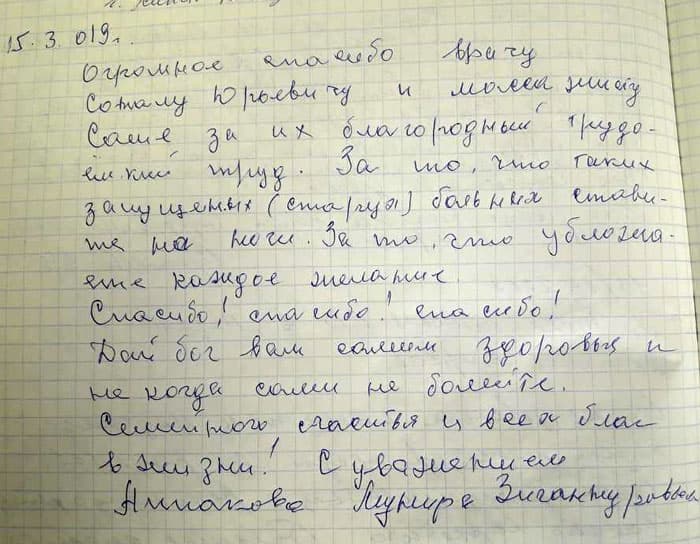 15.3.019г.
Огромное спасибо врачу
Юрьевичу и массажисту
Саше за их благородный трудо-
ёмкий труд. За то, что таких
запущеных (старух) больных стави-
те на ноги. За то, что ублажа-
ете каждое желание.
Спасибо! спасибо! спасибо!
Дай бог вам самим здоровья и
не когда сами не болейте.
Семейного счастья и всех благ
в жизни! С уважением
Мунира Зигантуровна